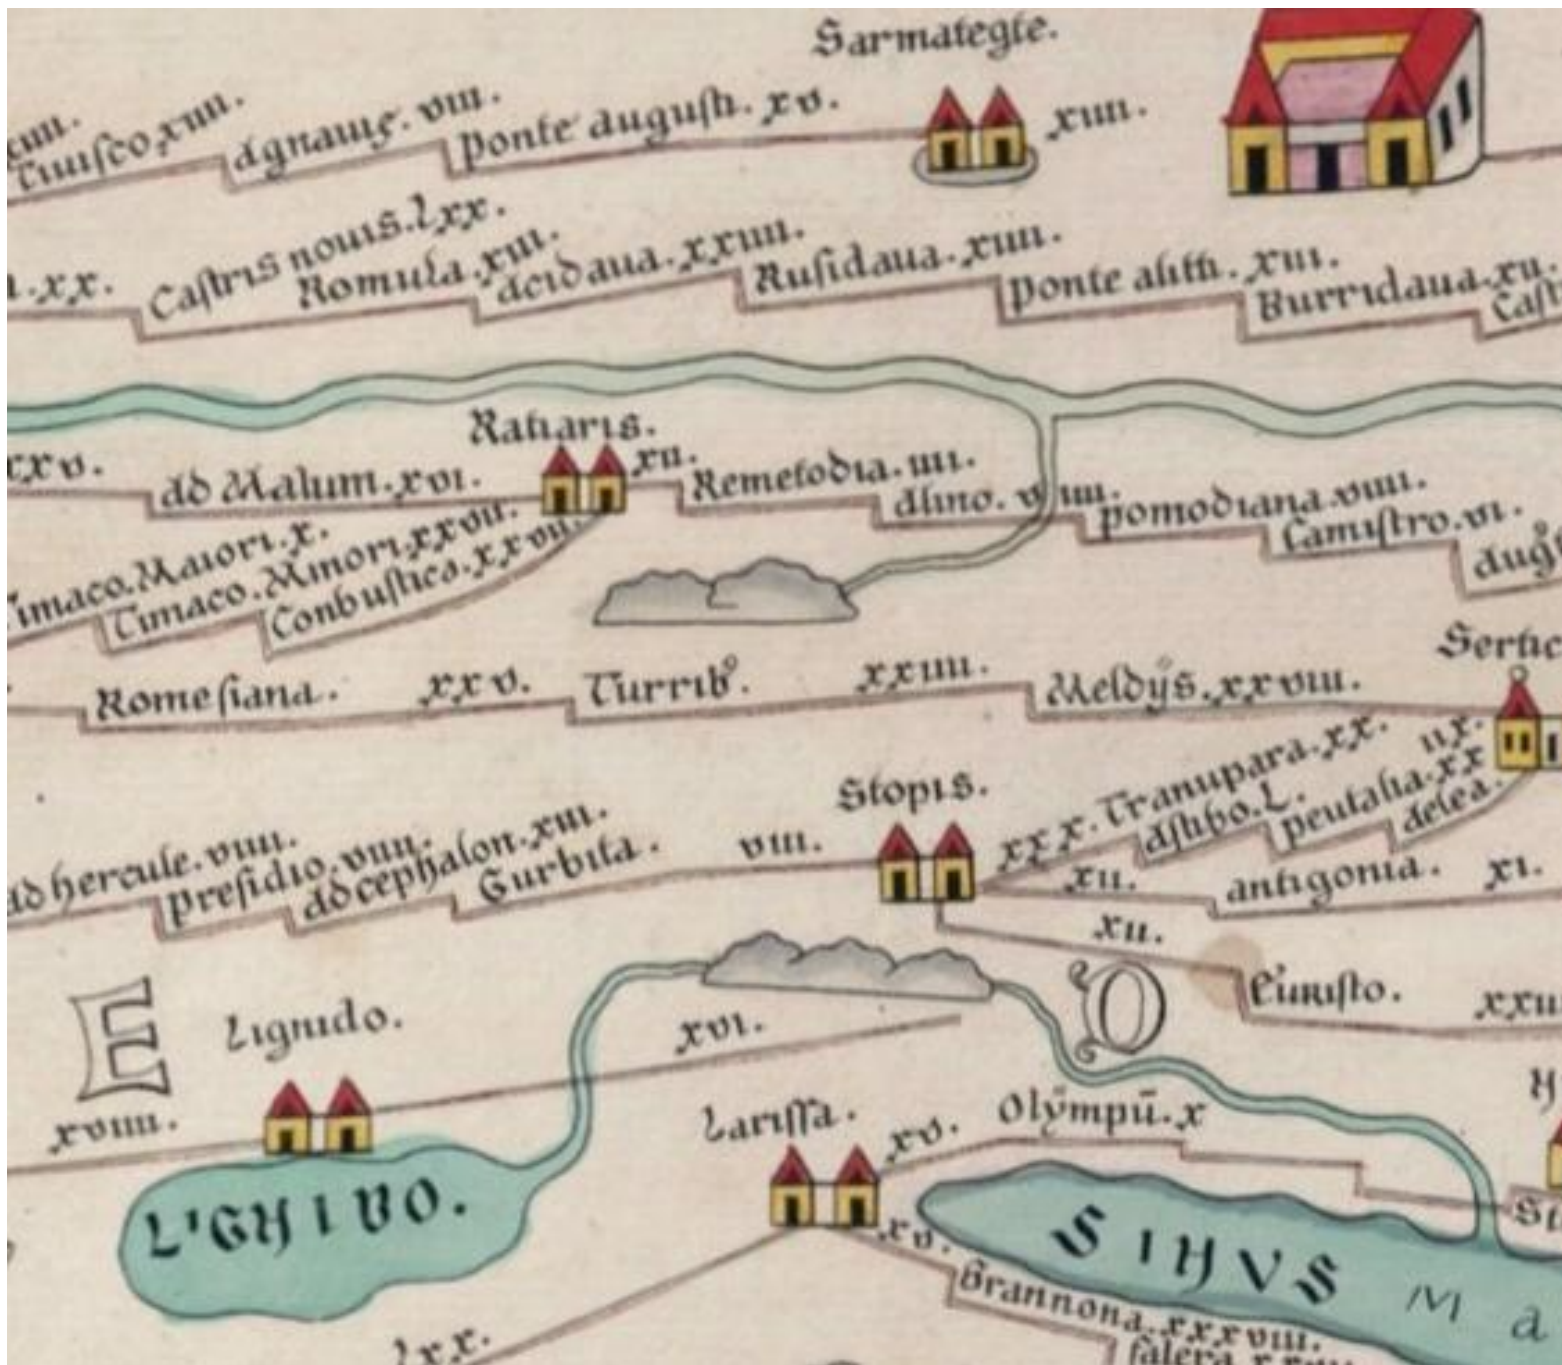 Sarmategte.
Tiuisco.xiiii.
agnauie.viii.
ponte augusti.xv.
xiiii.
Castris nouis.lxx.
Romula.xiii.
acidaua.xxiiii.
Rusidaua.xiiii.
ponte aluti.xiii.
Burridaua.xii.
xx.
Ratiaris.
xxv.
ad Malum.xvi.
xii.
Remetodia.iiii.
almo.viiii.
pomodiana.viiii.
Camistro.vi.
Timaco.Maiori.x.
Timaco.Minori.xxvii.
Conbustica.xxvii.
Romesiana.
xxv.
Turribꝰ.
xxiiii.
Meldÿs.xxviii.
Sertic
Stopis.
xxx.Tranupara.xx.
astibo.L.
peutalia.xx
aelea.
iix.
ad hercule.viiii.
presidio.viiii.
ad cephalon.xiii.
Gurbita.
viii.
xii.
antigonia.
xi.
xii.
Euristo.
xxii
E
Lignido.
xvi.
O
xviiii.
Larissa.
xv.
Olÿmpū.x
St
LIGHIDO.
SINVS
M
a
xv.
Brannona.xxxviii.
lxx.